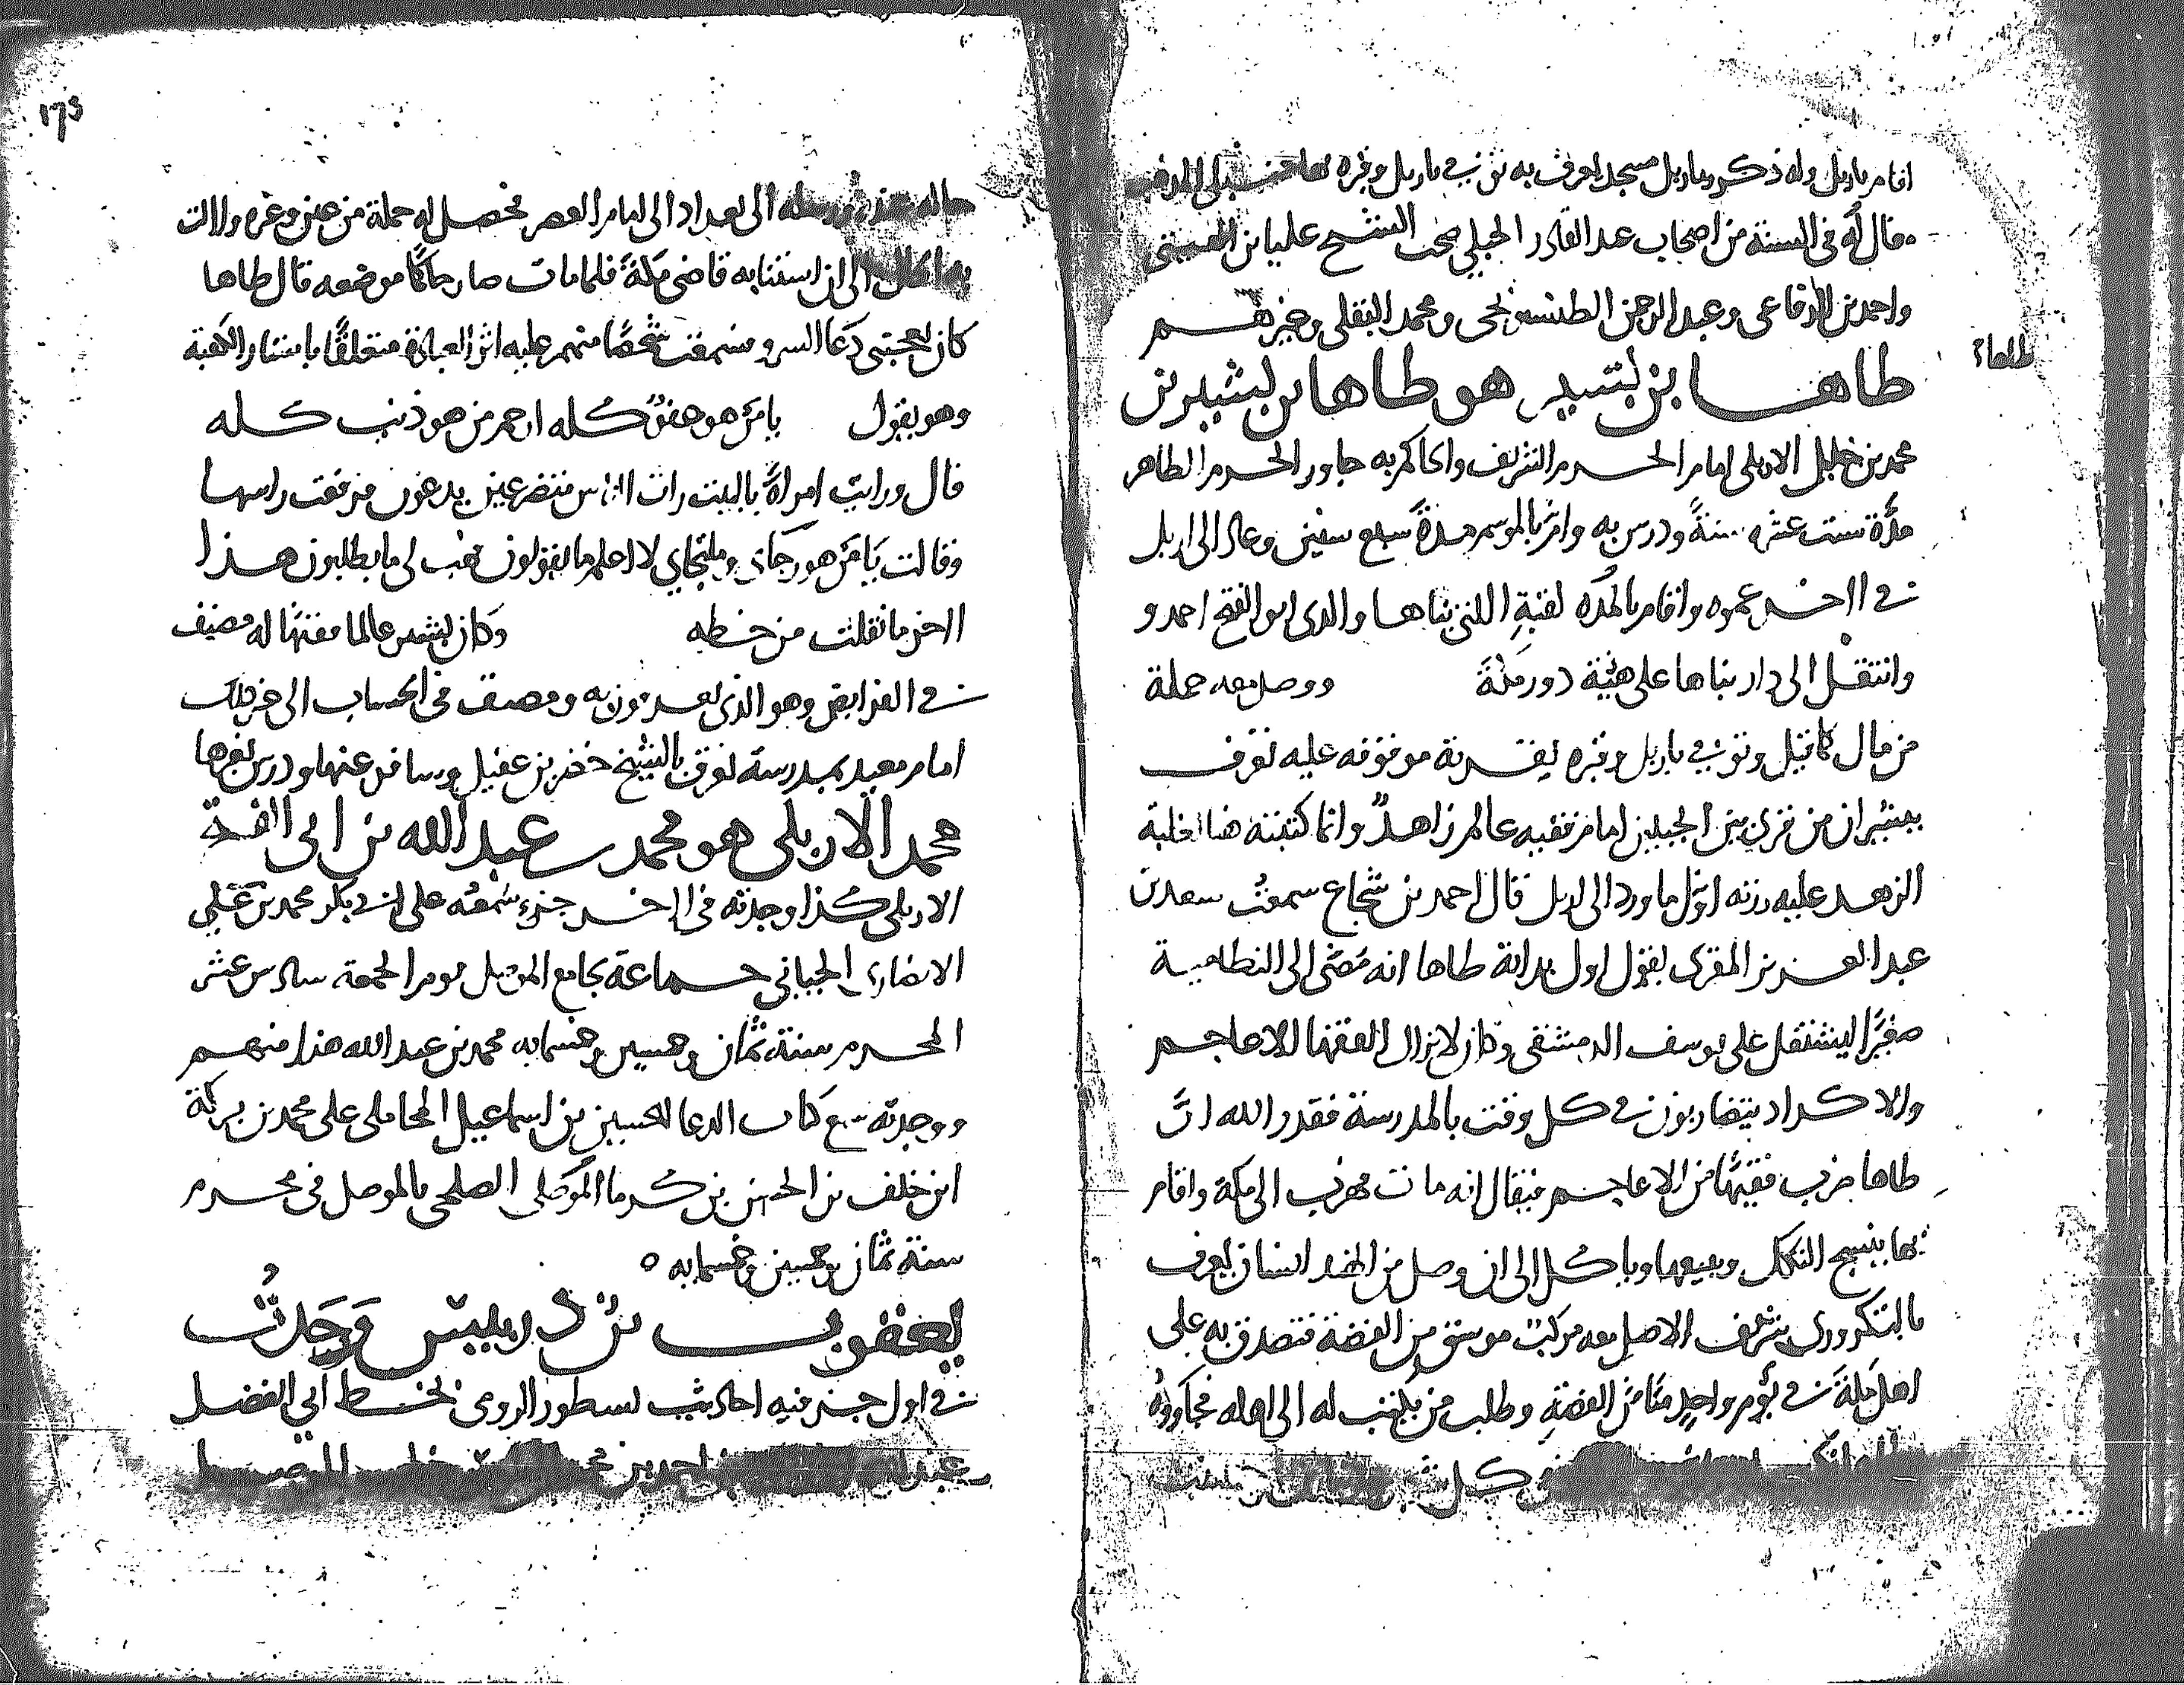 اقام باربل وله ذكر وباربل مسجد يعرف به توفي باربل وقبره بها حنبلي المذهب
وقال له في السنة من اصحاب عبد القادر الجيلي صحب الشيخ عليا بن الهيتي
واحمد بن الرفاعي وعبد الرحمن الطفسونجي ومحمد البقلي وغيرهم
طاها
طاها بن بشير هو طاها بن بشير بن
محمد بن خليل الاربلي امام الحرم الشريف والحاكم به جاور الحرم الطاهر
مدة ست عشرة سنة ودرس به وام بالموسم مدة سبع سنين وعاد الى اربل
في اخر عمره واقام بالمدرسة التي بناها والدي ابو الفتح احمد و
وانتقل الى دار بناها على هيئة دور مكة ووصل معه جملة
من مال كاتيل وتوفي باربل وقبره بقرية موقوفه عليه تعرف
من قرى بين الجبلين امام فقيه عالم زاهد وانما كتبته هنا لغلبة
الزهد عليه زرته اول ما ورد الى اربل قال احمد بن شجاع سمعت سعد بن
عبد العزيز المقرئ يقول اول بداية طاها انه مضى الى النظامية
صغيرا ليشتغل على يوسف الدمشقي وكان لا يزال الفقها الاعاجم
والاكراد يتضاربون في كل وقت بالمدرسة فقدر الله ان
طاها ضرب فقيها من الاعاجم فيقال انه مات فهرب الى مكة واقام
بها ينسج التكك ويبيعها وياكل الى ان وصل من الهند انسان يعرف
بالتكروري الاصل معه مركب موسق من الفضة فتصدق به على
اهل مكة في يوم واحد منا من الفضة وطلب من يكتب له الى اهله فجاوروه
كل
١٧٣
حاله عنده الى بغداد الى امام العصر فحصل له جملة من عين وغيره ولا زالت
الى ان استنابه قاضي مكة فلما مات صار حاكما موضعه قال طاها
كان يعجبني دعا السر وسمعت شخصا منهم عليه اثر العبادة متعلقا باستار الكعبة
وهو يقول يا من هو عفو كله ارحم من هو ذنب كله
قال ورايت امراة بالبيت رات الناس متضرعين يدعون فرفعت راسها
وقالت يا من هو رجاي وملتجاي لا اعلم ما يقولون فهب لي ما يطلبون هذا
اخر ما نقلت من خطه وكان بشير عالما مفتنا له مصنف
في الفرايض وهو الذي يعرفون به ومصنف في الحساب الى غير ذلك
امام معيد بمدرسة تعرف بالشيخ خضر بن عقيل وسافر عنها ودرس بغيرها
محمد الاربلي هو محمد بن عبد الله بن ابي
الاربلي كذا وجدته في اخر جزء سمعه على ابي بكر محمد بن علي
الانصاري الجياني جماعة بجامع الموصل يوم الجمعة سادس عشر
المحرم سنة ثمان وخمسين وخمسمايه محمد بن عبد الله هذا منهم
ووجدته سمع كتاب الدعا للحسين بن اسماعيل المحاملي على محمد بن بركة
ابن خلف بن الحسين بن كرما الموصلي الصلحي بالموصل في محرم
سنة ثمان وخمسين وخمسمايه ه
يعقوب بن دربيس وجدت
في اول جزء فيه احاديث نسطور الرومي بخط ابي الفضل
احمد بن